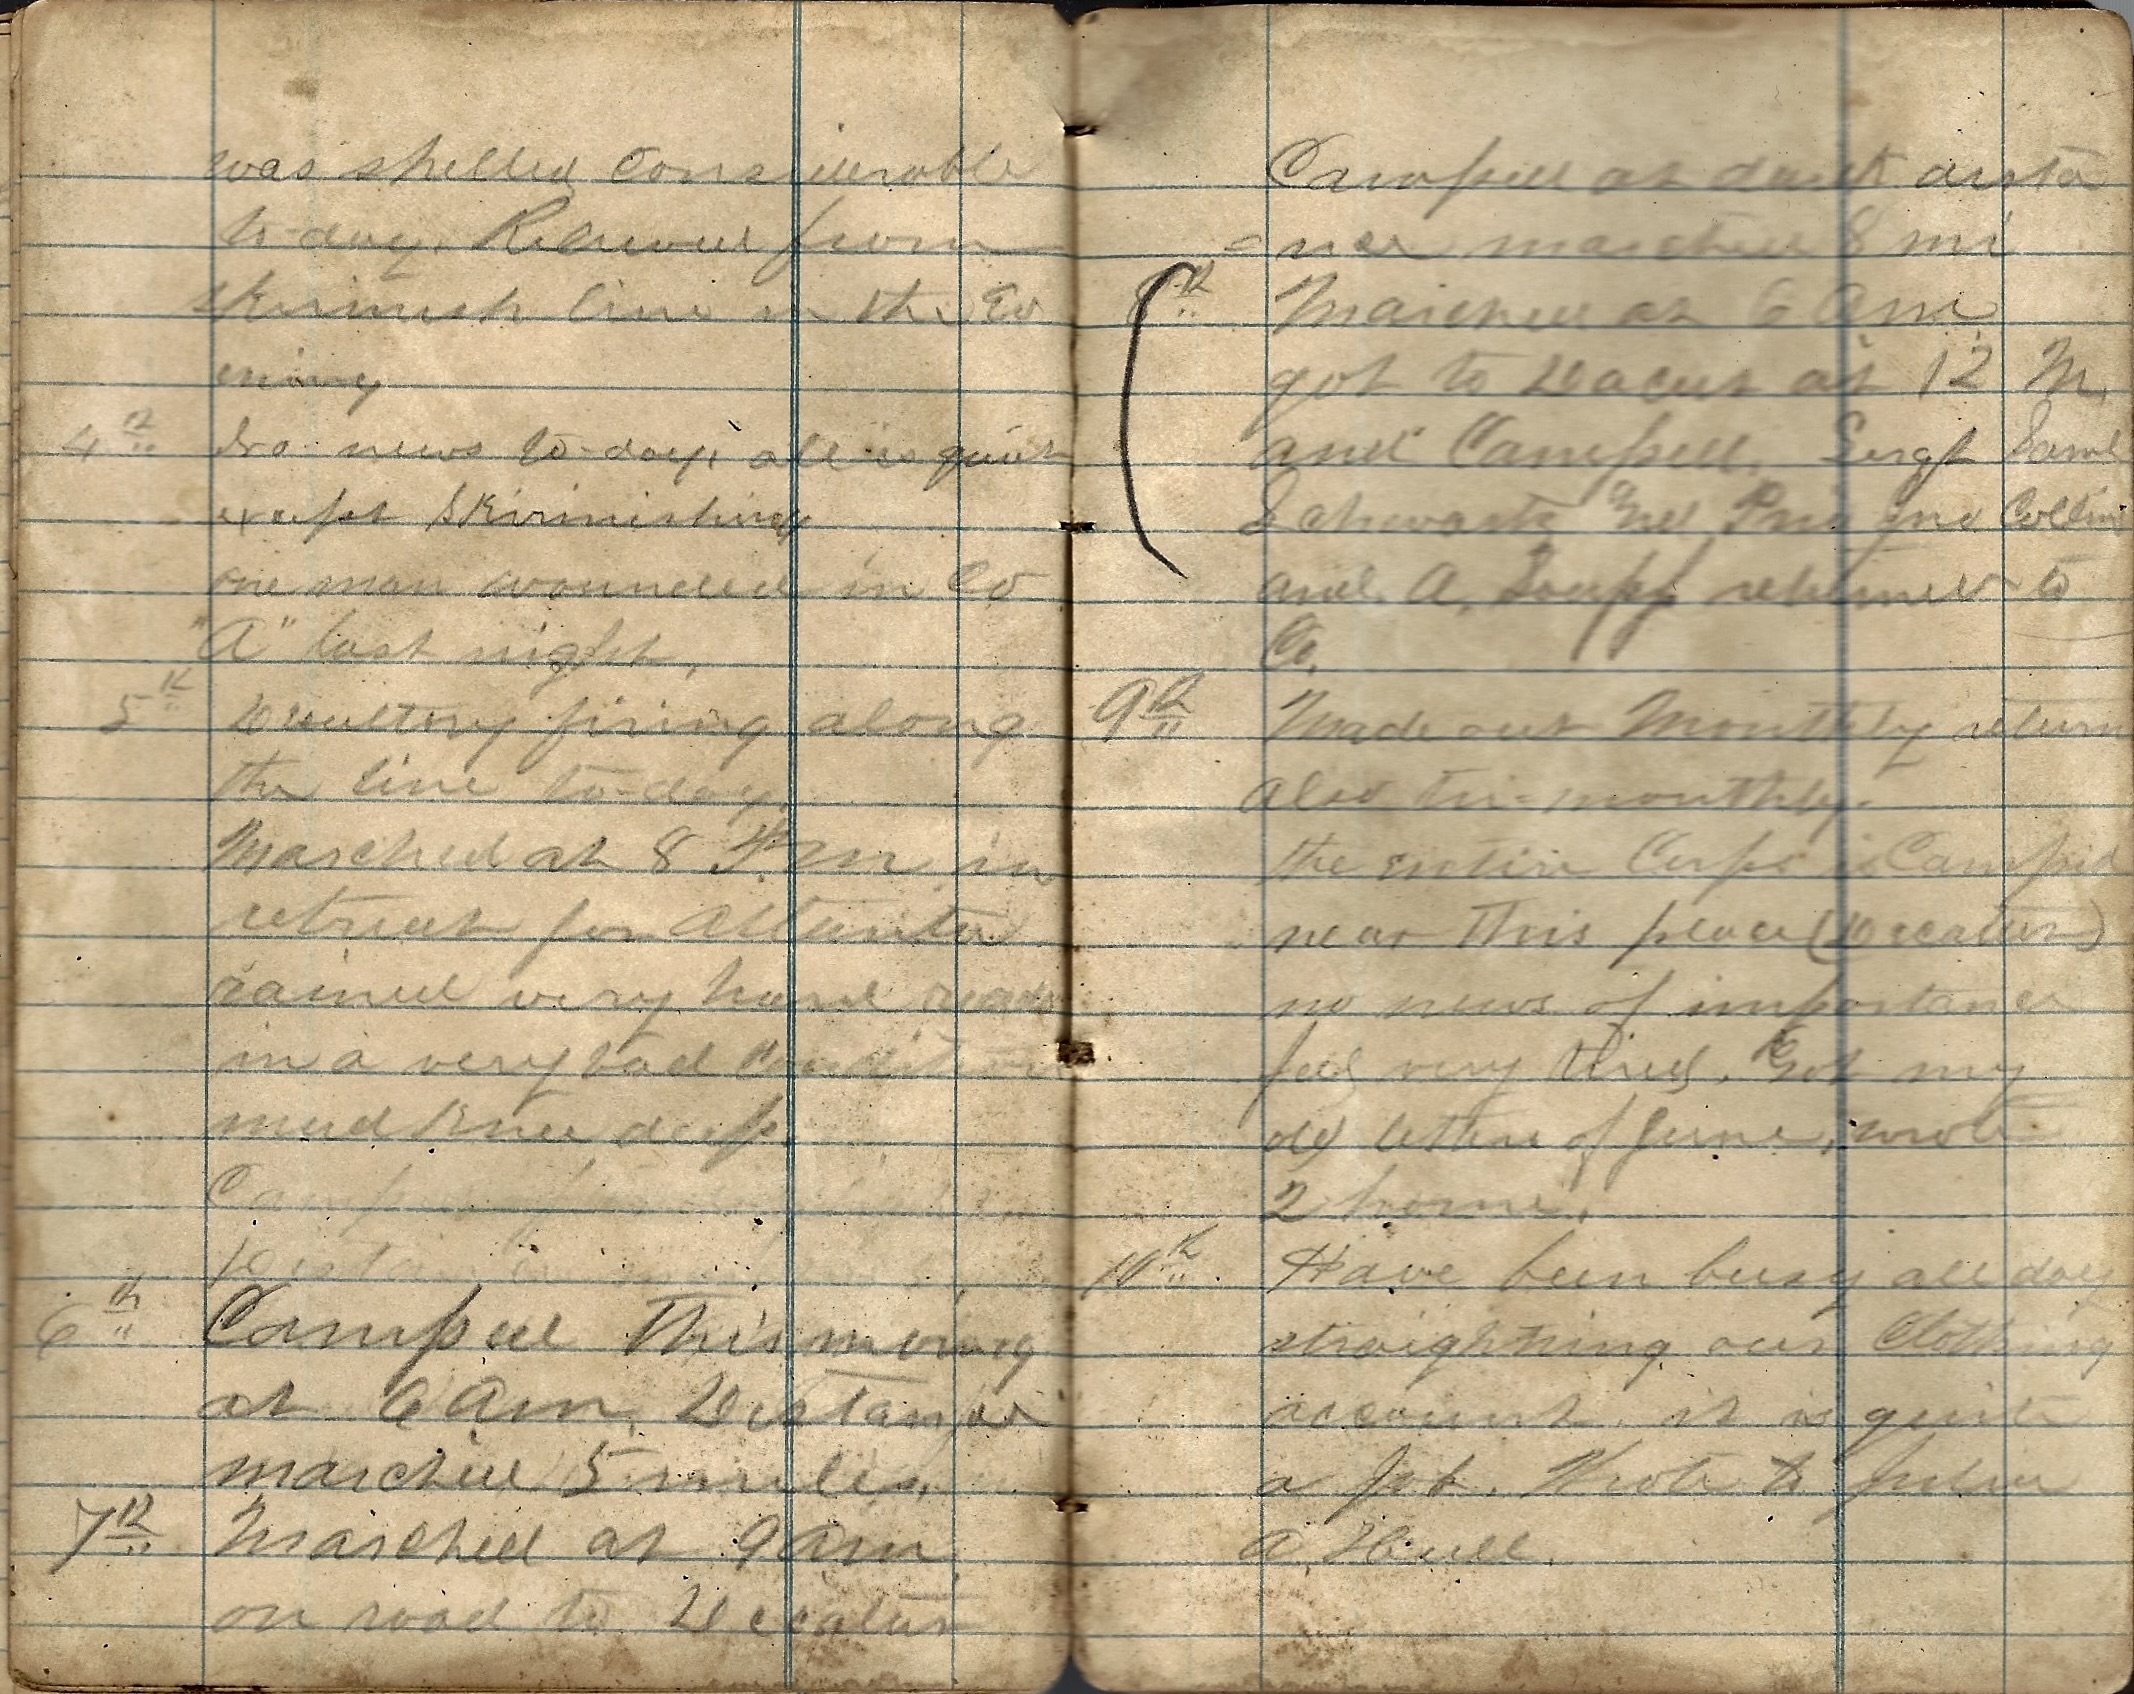 was shelled considerable
to-day. Relieved from
skirmish line in the Ev
ening
4th No news to-day, all is quiet
except Skirmishing
one man wounded in Co
"A" last night,
5th Desultory firing along
the line to-day.
Marched at 8 P.M. in
retreat for Attlanta
rained very hard roads
in a very bad Condition
mud knee deep
Camped
Distance
6th Camped this morning
at 6 Am. Distance
marched 5 miles.
7th Marched at 9 am
on road to Decatur
Camped at dark dista
= nce marched 8 mi
8th Marched at 6 Am
got to Decatur at 12 M,
and Camped. Sergt Saml
Schwartz and Collin
and A. returned to
Co.
9th Made out Monthly return
also tri-monthly.
the entire Corps is Camped
near this place (Decatur)
no news of importance
feel very tired. Got my
old letters of June, wrote
2 home.
10th Have been busy all day
straightning our Clothing
account. it is quite
a job. Wrote to Julia
A. Hull.